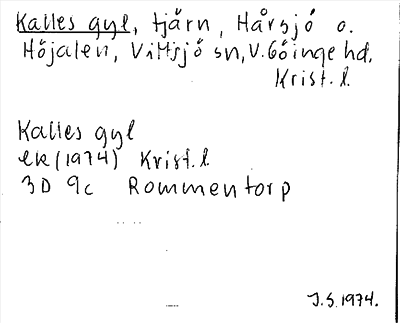 Kalles gyl, tjärn, Hårsjö o.
Höjalen, Vittsjö sn, V. Göinge hd.
Krist. l.
Kalles gyl
ek (1974) Krist. l.
3D 9c Rommentorp
J.S. 1974.